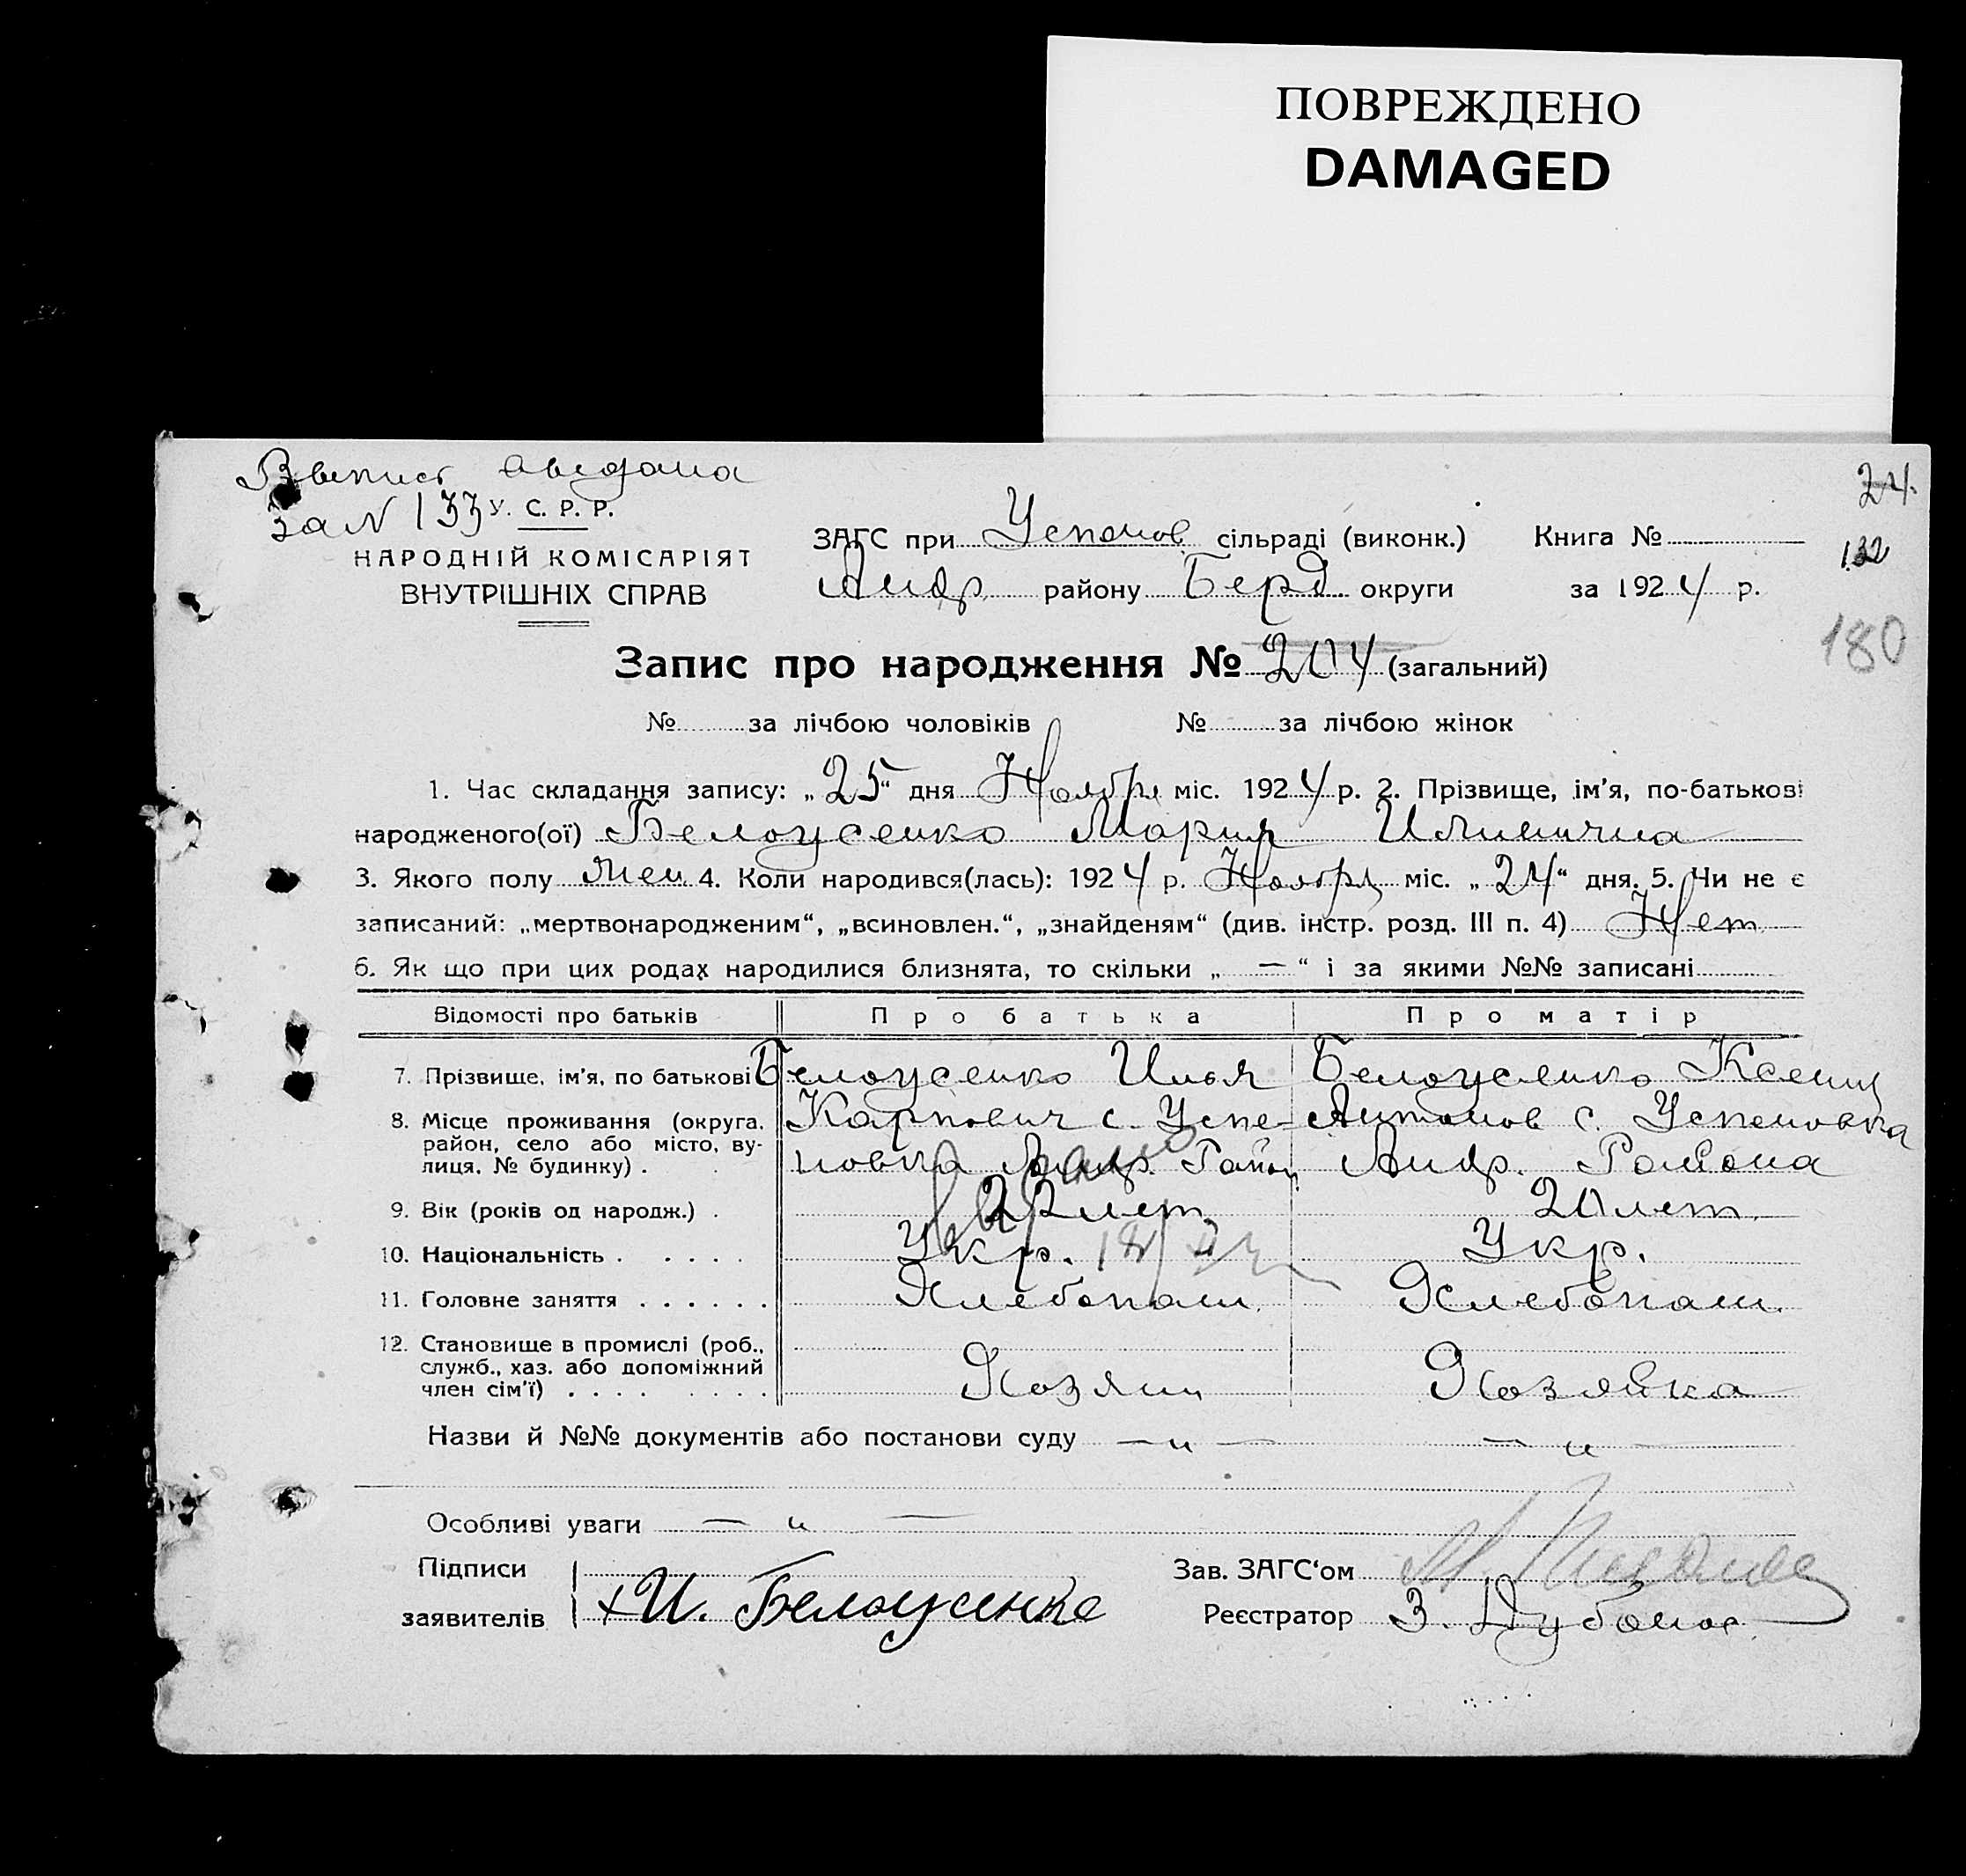 ПОВРЕЖДЕНО
DAMAGED
выдана
за N 133 У. С. Р. Р.
24.
НАРОДНІЙ КОМІСАРІЯТ
ВНУТРІШНІХ СПРАВ
ЗАГС при Успенов. сільраді (виконк.) Книга №
132
Андр. району Берд. округи за 1924 р.
180
Запис про народження № 204 (загальний)
№ за лічбою чоловіків № за лічбою жінок
1. Час складання запису: „25“ дня Ноября міс. 1924 р. 2. Прізвище, ім'я, по-батькові
народженого(ої) Белоусенко Мария Илинична
3. Якого полу Жен. 4. Коли народився(лась): 1924 р. Ноября міс. „24“ дня. 5. Чи не є
записаний: „мертвонародженим“, „всиновлен.“, „знайденям“ (див. інстр. розд. III п. 4) Нет
6. Як що при цих родах народилися близнята, то скільки „ — “ і за якими №№ записані
Відомості про батьків Про батька Про матір
7. Прізвище, ім'я, по батькові Белоусенко Илья Белоусенко Ксения
8. Місце проживання (округа, район, село або місто, вулиця, № будинку) . Карпович с. Успе- Антонов с. Успеновка
новка Андр. Район Андр. Района
9. Вік (років од народж.) . 22 лет 20 лет.
10. Національність . . . . . Укр. Укр.
11. Головне заняття . . . . . . Хлебопаш. Хлебопаш.
12. Становище в промислі (роб., служб., хаз. або допоміжний член сім'ї) . . . . . . . . Хозяин Хозяйка
Назви й №№ документів або постанови суду — „ — — „ —
Особливі уваги — „ —
Підписи Зав. ЗАГС'ом
заявителів + И. Белоусенко Реєстратор З. Дубонос